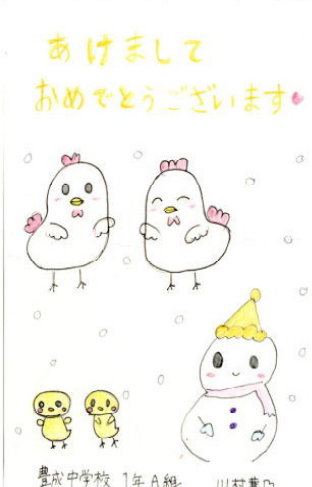 あけまして
おめでとうございます
豊成中学校 1年A組 川村